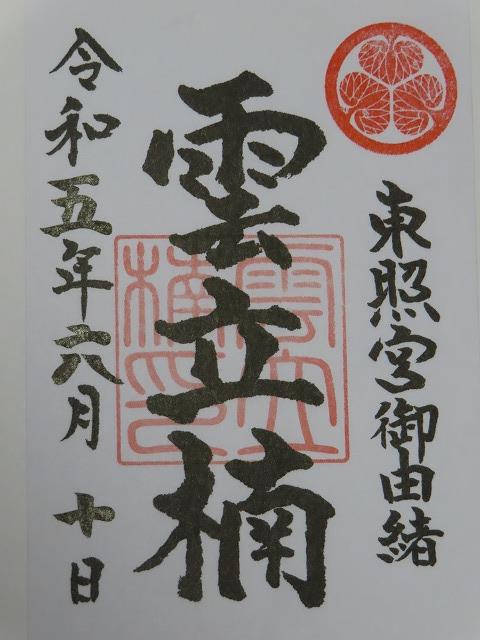 東照宮御由緒
雲立楠
雲立
楠印
令和五年六月 十日